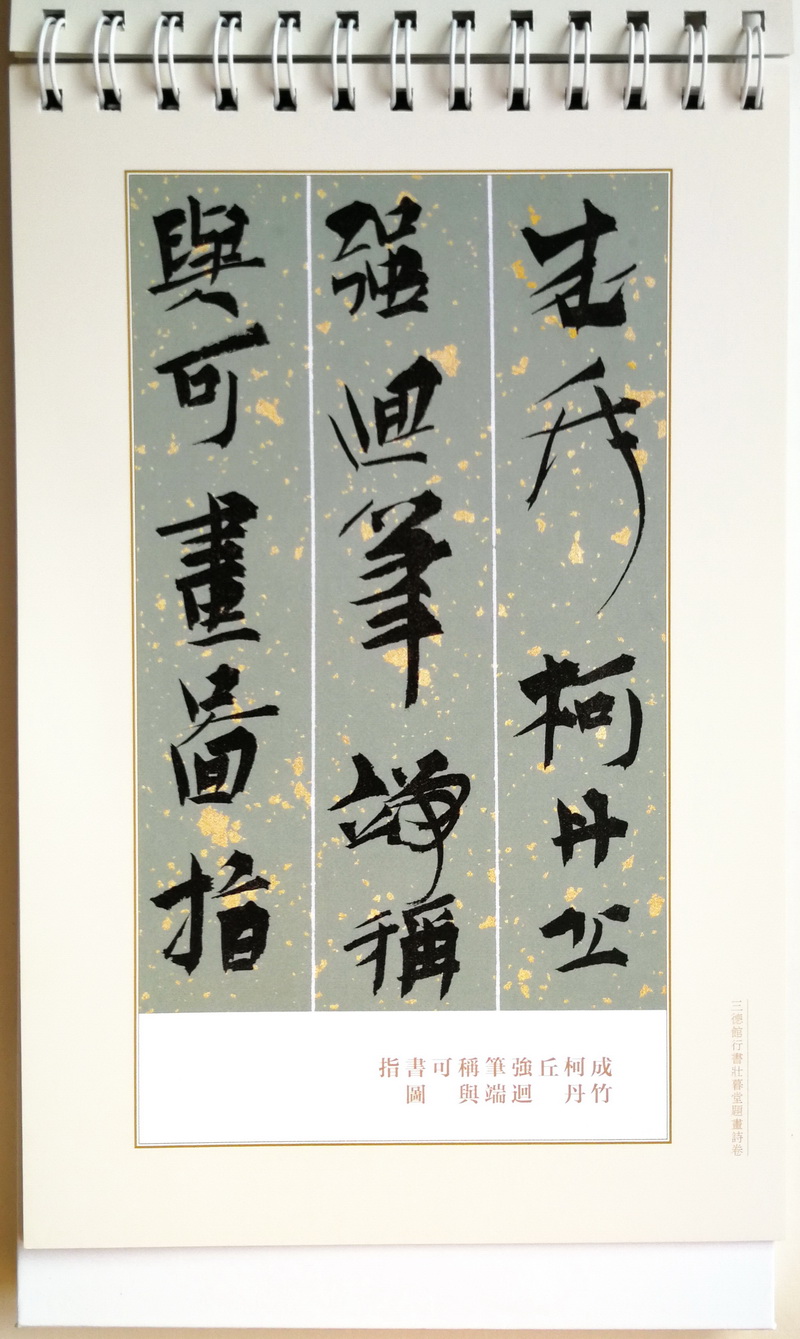 成竹柯丹丘
强迴筆端稱
與可畫圖指
成竹
柯丹
丘
強迴
筆端
稱與
可
書圖
指
三德館行書壯暮堂題畫詩卷